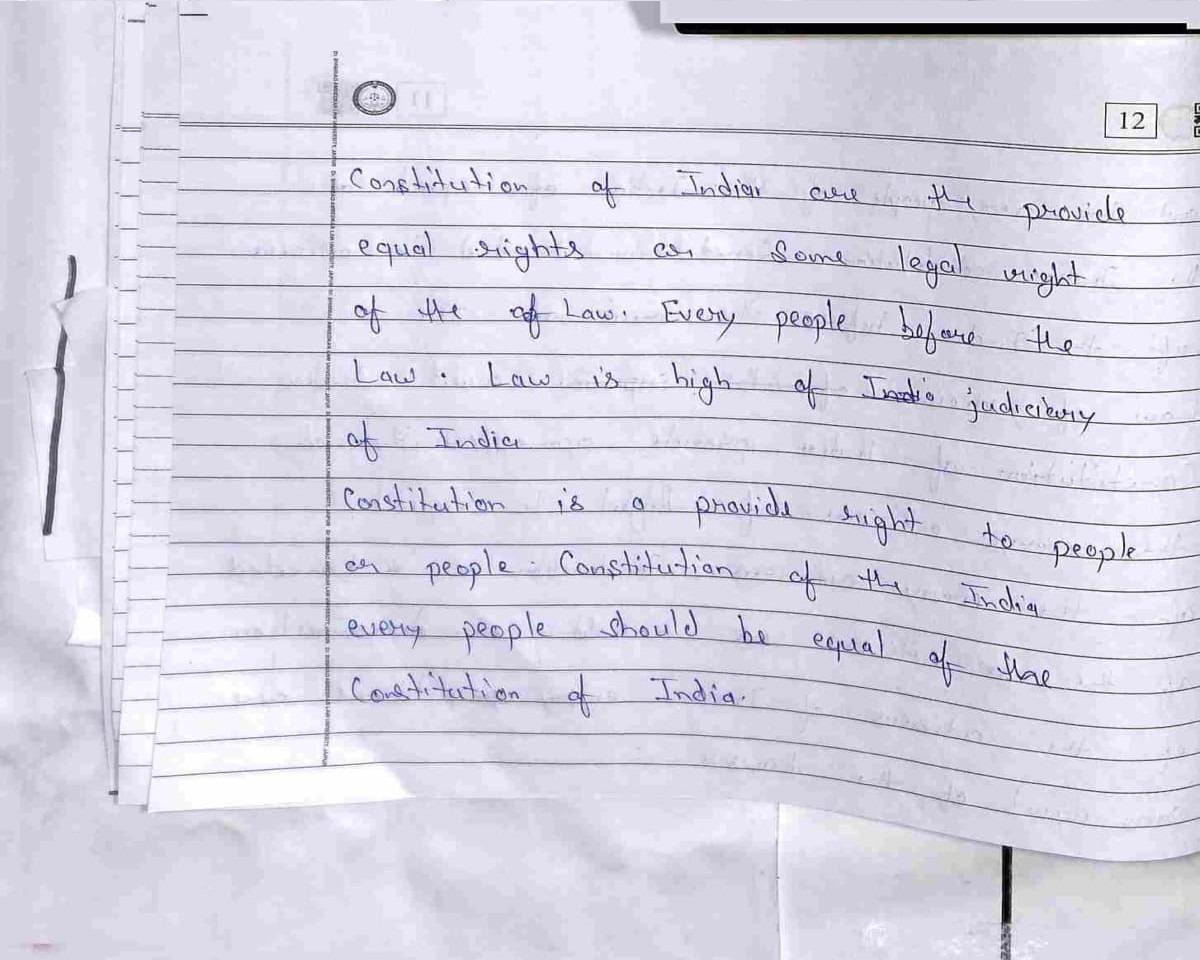 12
Constitution of India are the provide
equal rights or some legal right
of the of Law. Every people before the
Law. Law is high of India judiciary
of India
Constitution is a provide right to people
or people. Constitution of the India
every people should be equal of the
Constitution of India.